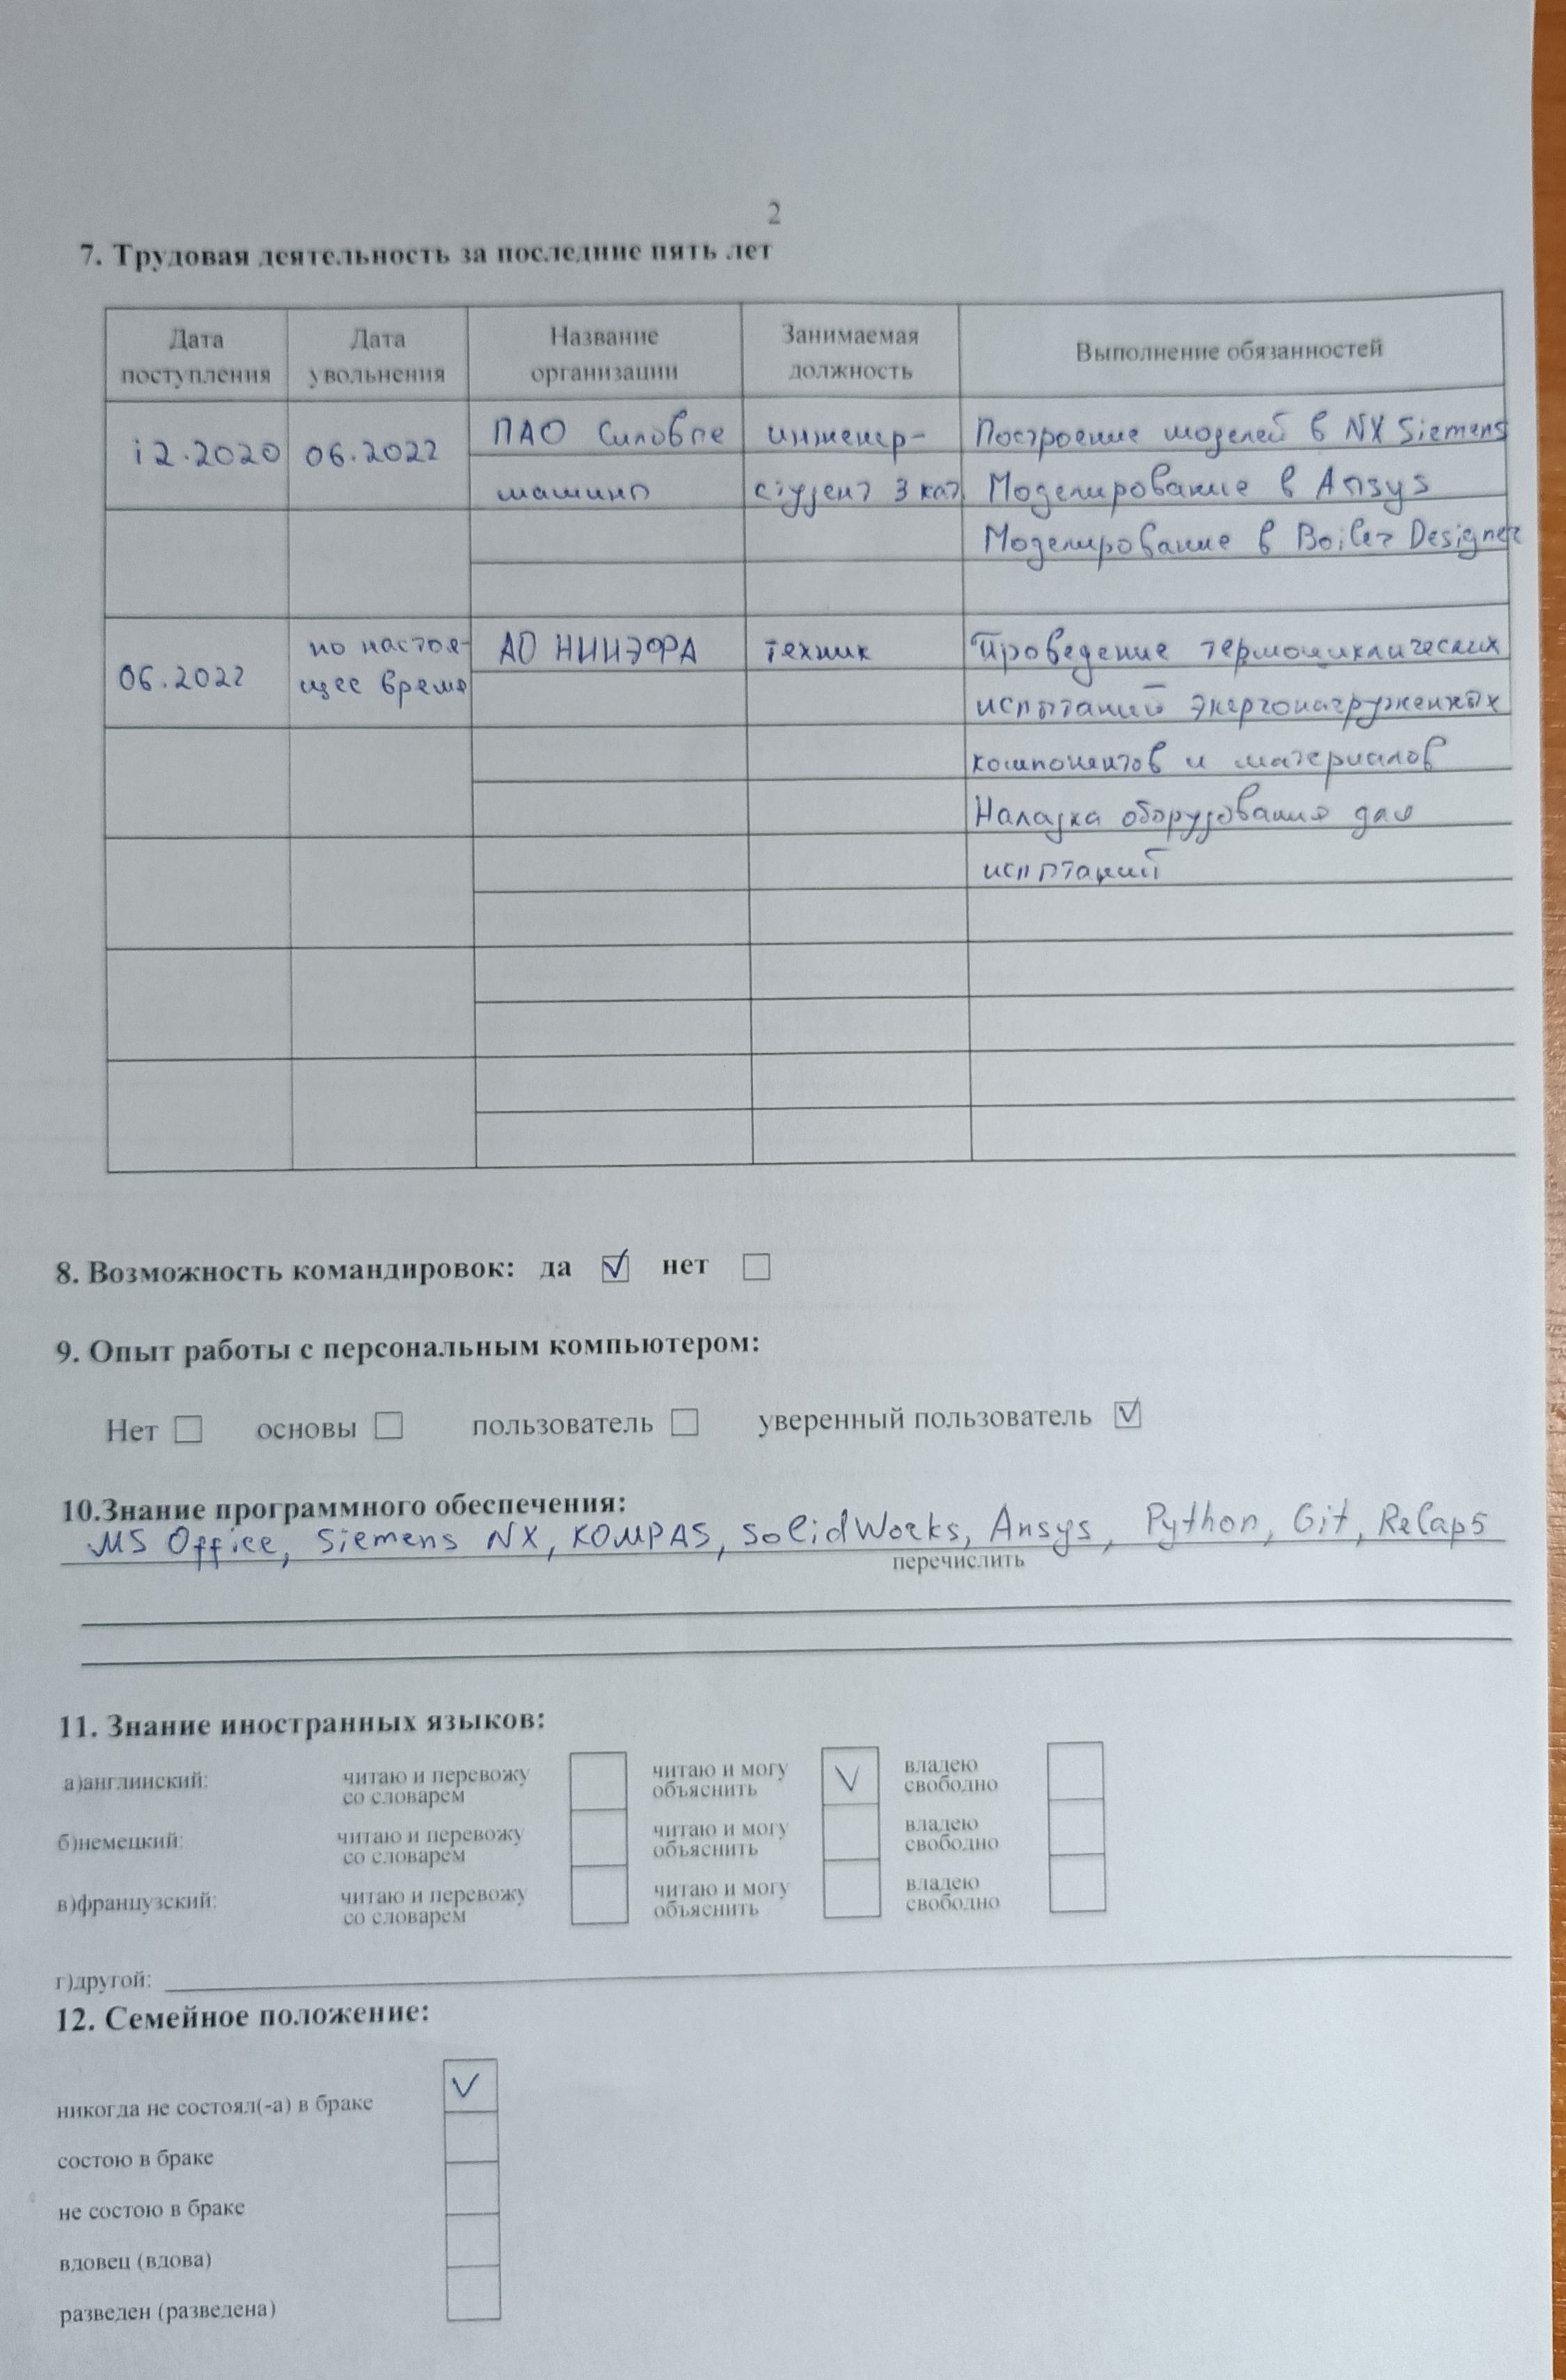 2
7. Трудовая деятельность за последние пять лет
Дата поступления Дата увольнения Название организации Занимаемая должность Выполнение обязанностей
12.2020 06.2022 ПАО Силовые инженер- Построение моделей в NX Siemens
машины студент 3 кат Моделирование в Ansys
Моделирование в Boiler Designer
06.2022 по настоя- АО НИИЭФА техник Проведение термоциклических
щее время испытаний энергонагруженных
компонентов и материалов
Наладка оборудования для
испытаний
8. Возможность командировок: да ☑ нет ☐
9. Опыт работы с персональным компьютером:
Нет ☐ основы ☐ пользователь ☐ уверенный пользователь ☑
10.Знание программного обеспечения:
MS Office, Siemens NX, KOMPAS, SolidWorks, Ansys, Python, Git, Relap5
перечислить
11. Знание иностранных языков:
а)английский: читаю и перевожу со словарем ☐ читаю и могу объяснить ☑ владею свободно ☐
б)немецкий: читаю и перевожу со словарем ☐ читаю и могу объяснить ☐ владею свободно ☐
в)французский: читаю и перевожу со словарем ☐ читаю и могу объяснить ☐ владею свободно ☐
г)другой:
12. Семейное положение:
никогда не состоял(-а) в браке ☑
состою в браке ☐
не состою в браке ☐
вдовец (вдова) ☐
разведен (разведена) ☐